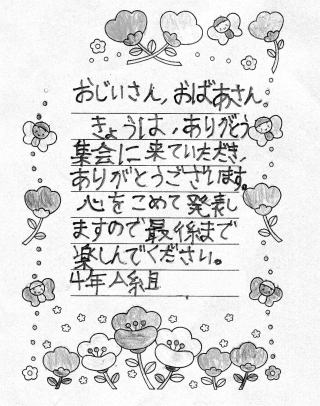 おじいさん,おばあさん,
きょうは,ありがとう
集会に来ていただき,
ありがとうございます。
心をこめて発表し
ますので最後まで
楽しんでください。
4年A組